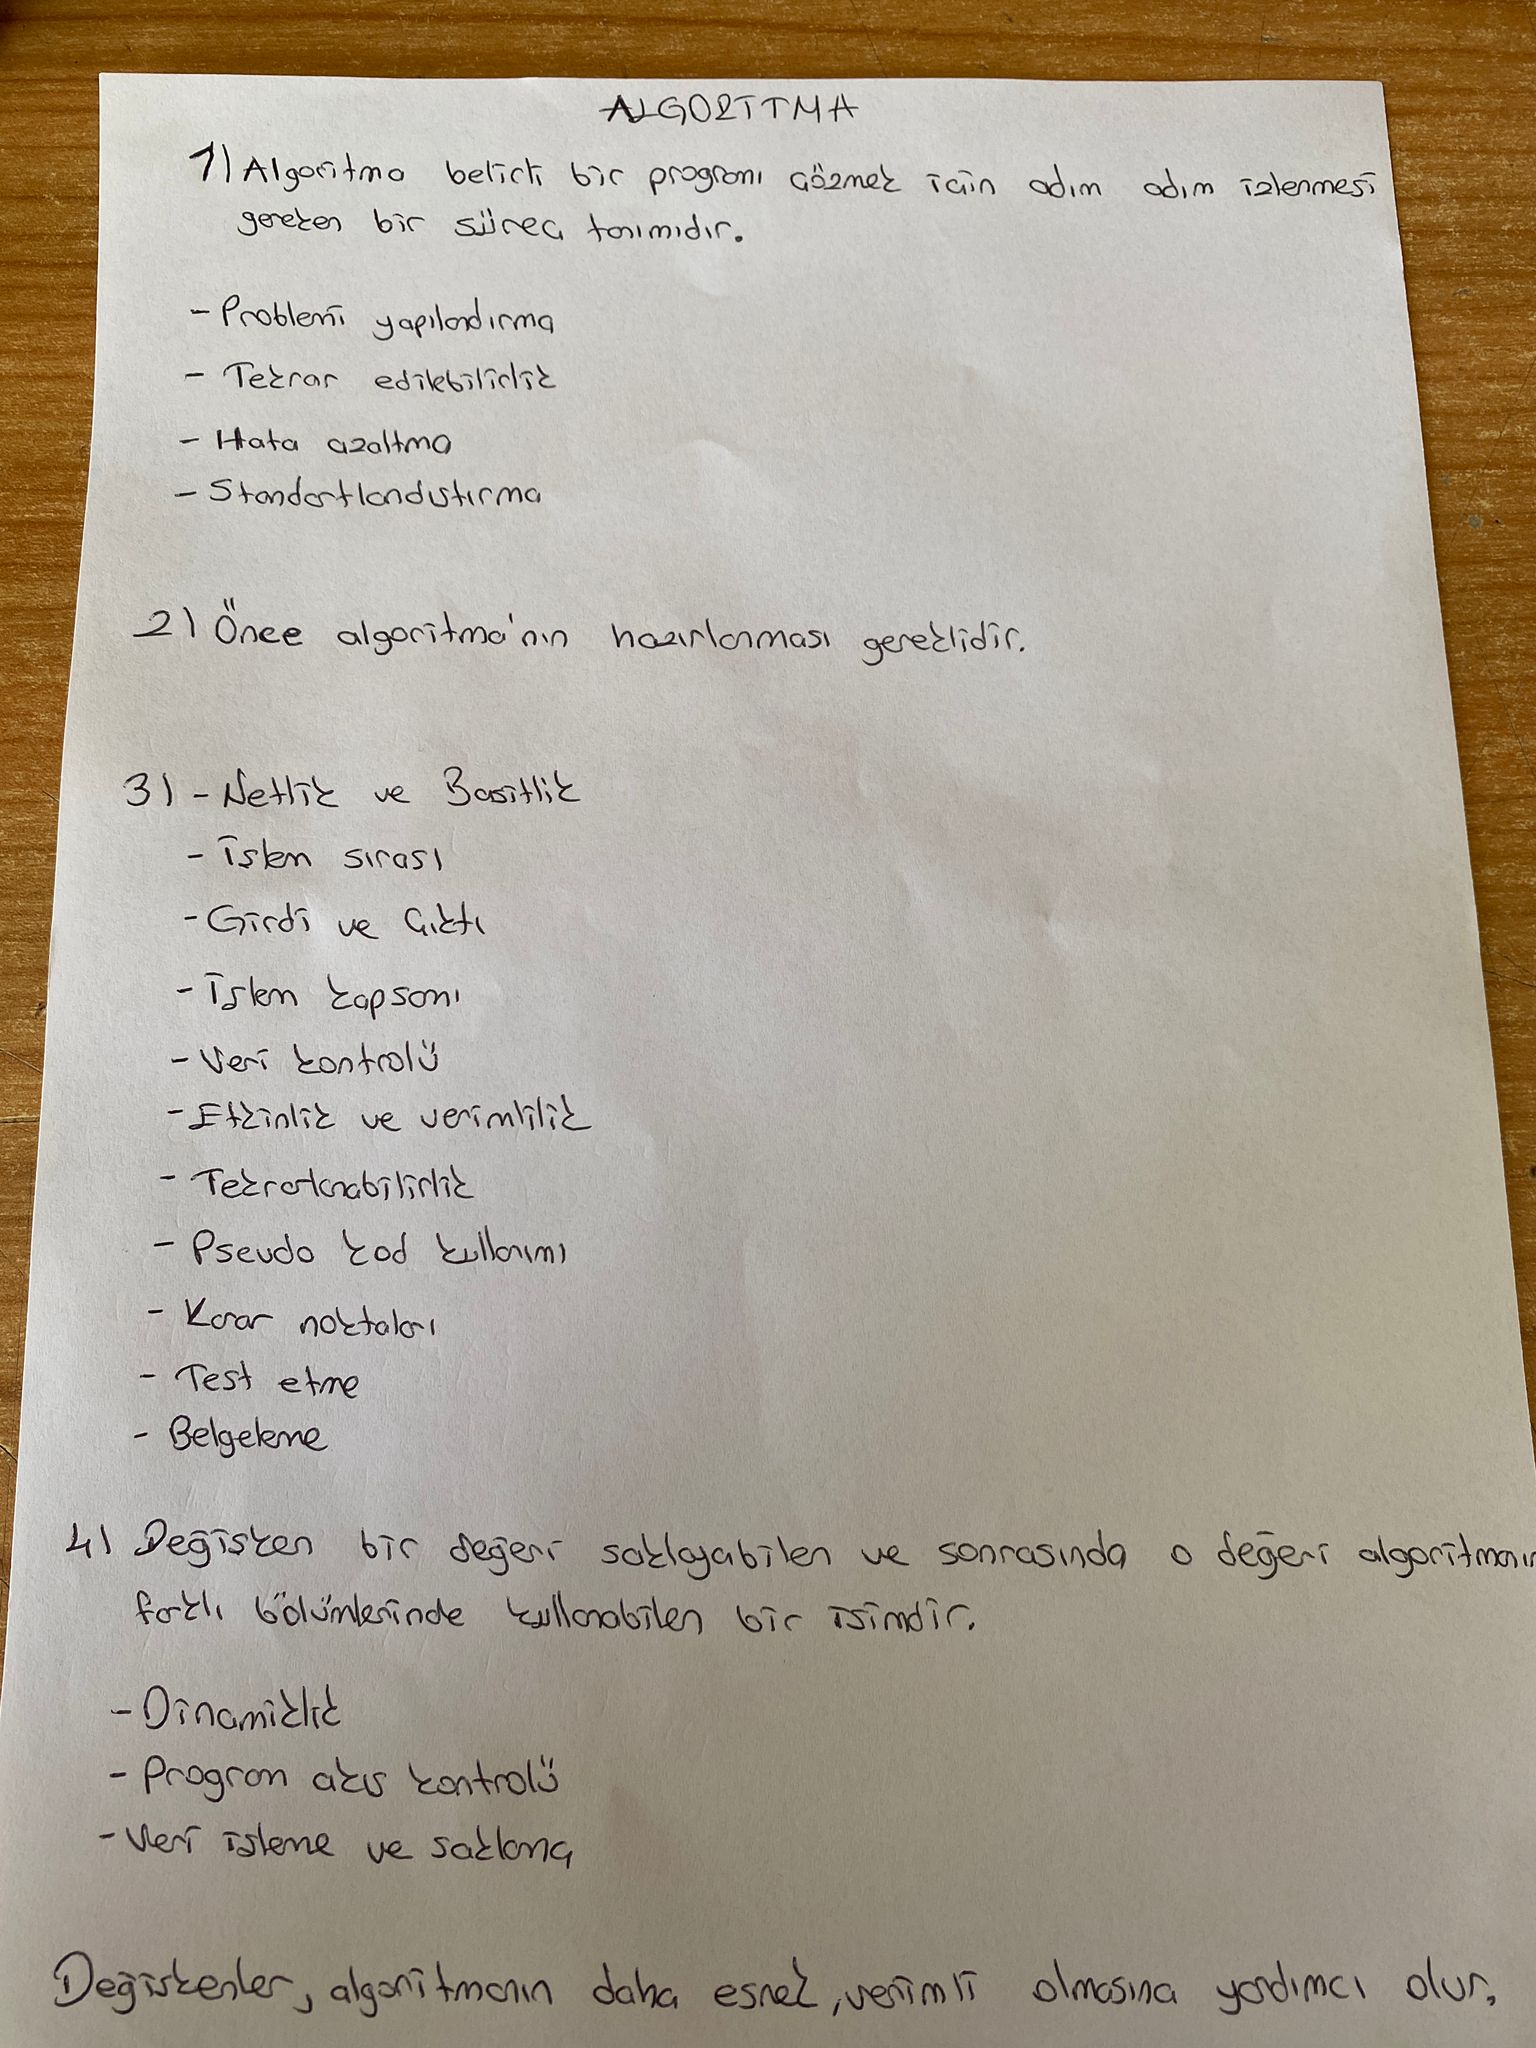 ALGORİTMA
1) Algoritma belirli bir programı çözmek için adım adım izlenmesi
gereken bir süreç tanımıdır.
- Problemi yapılandırma
- Tekrar edilebilirlik
- Hata azaltma
- Standartlandıştırma
2) Önce algoritma'nın hazırlanması gereklidir.
3) - Netlik ve Basitlik
- İşlem sırası
- Girdi ve Çıktı
- İşlem kapsamı
- Veri kontrolü
- Etkinlik ve verimlilik
- Tekrarlanabilirlik
- Pseudo kod kullanımı
- Karar noktaları
- Test etme
- Belgeleme
4) Değişken bir değeri saklayabilen ve sonrasında o değeri algoritmanın
farklı bölümlerinde kullanabilen bir isimdir.
- Dinamiklik
- Program akış kontrolü
- Veri işleme ve saklama
Değişkenler, algoritmanın daha esnek, verimli olmasına yardımcı olur.